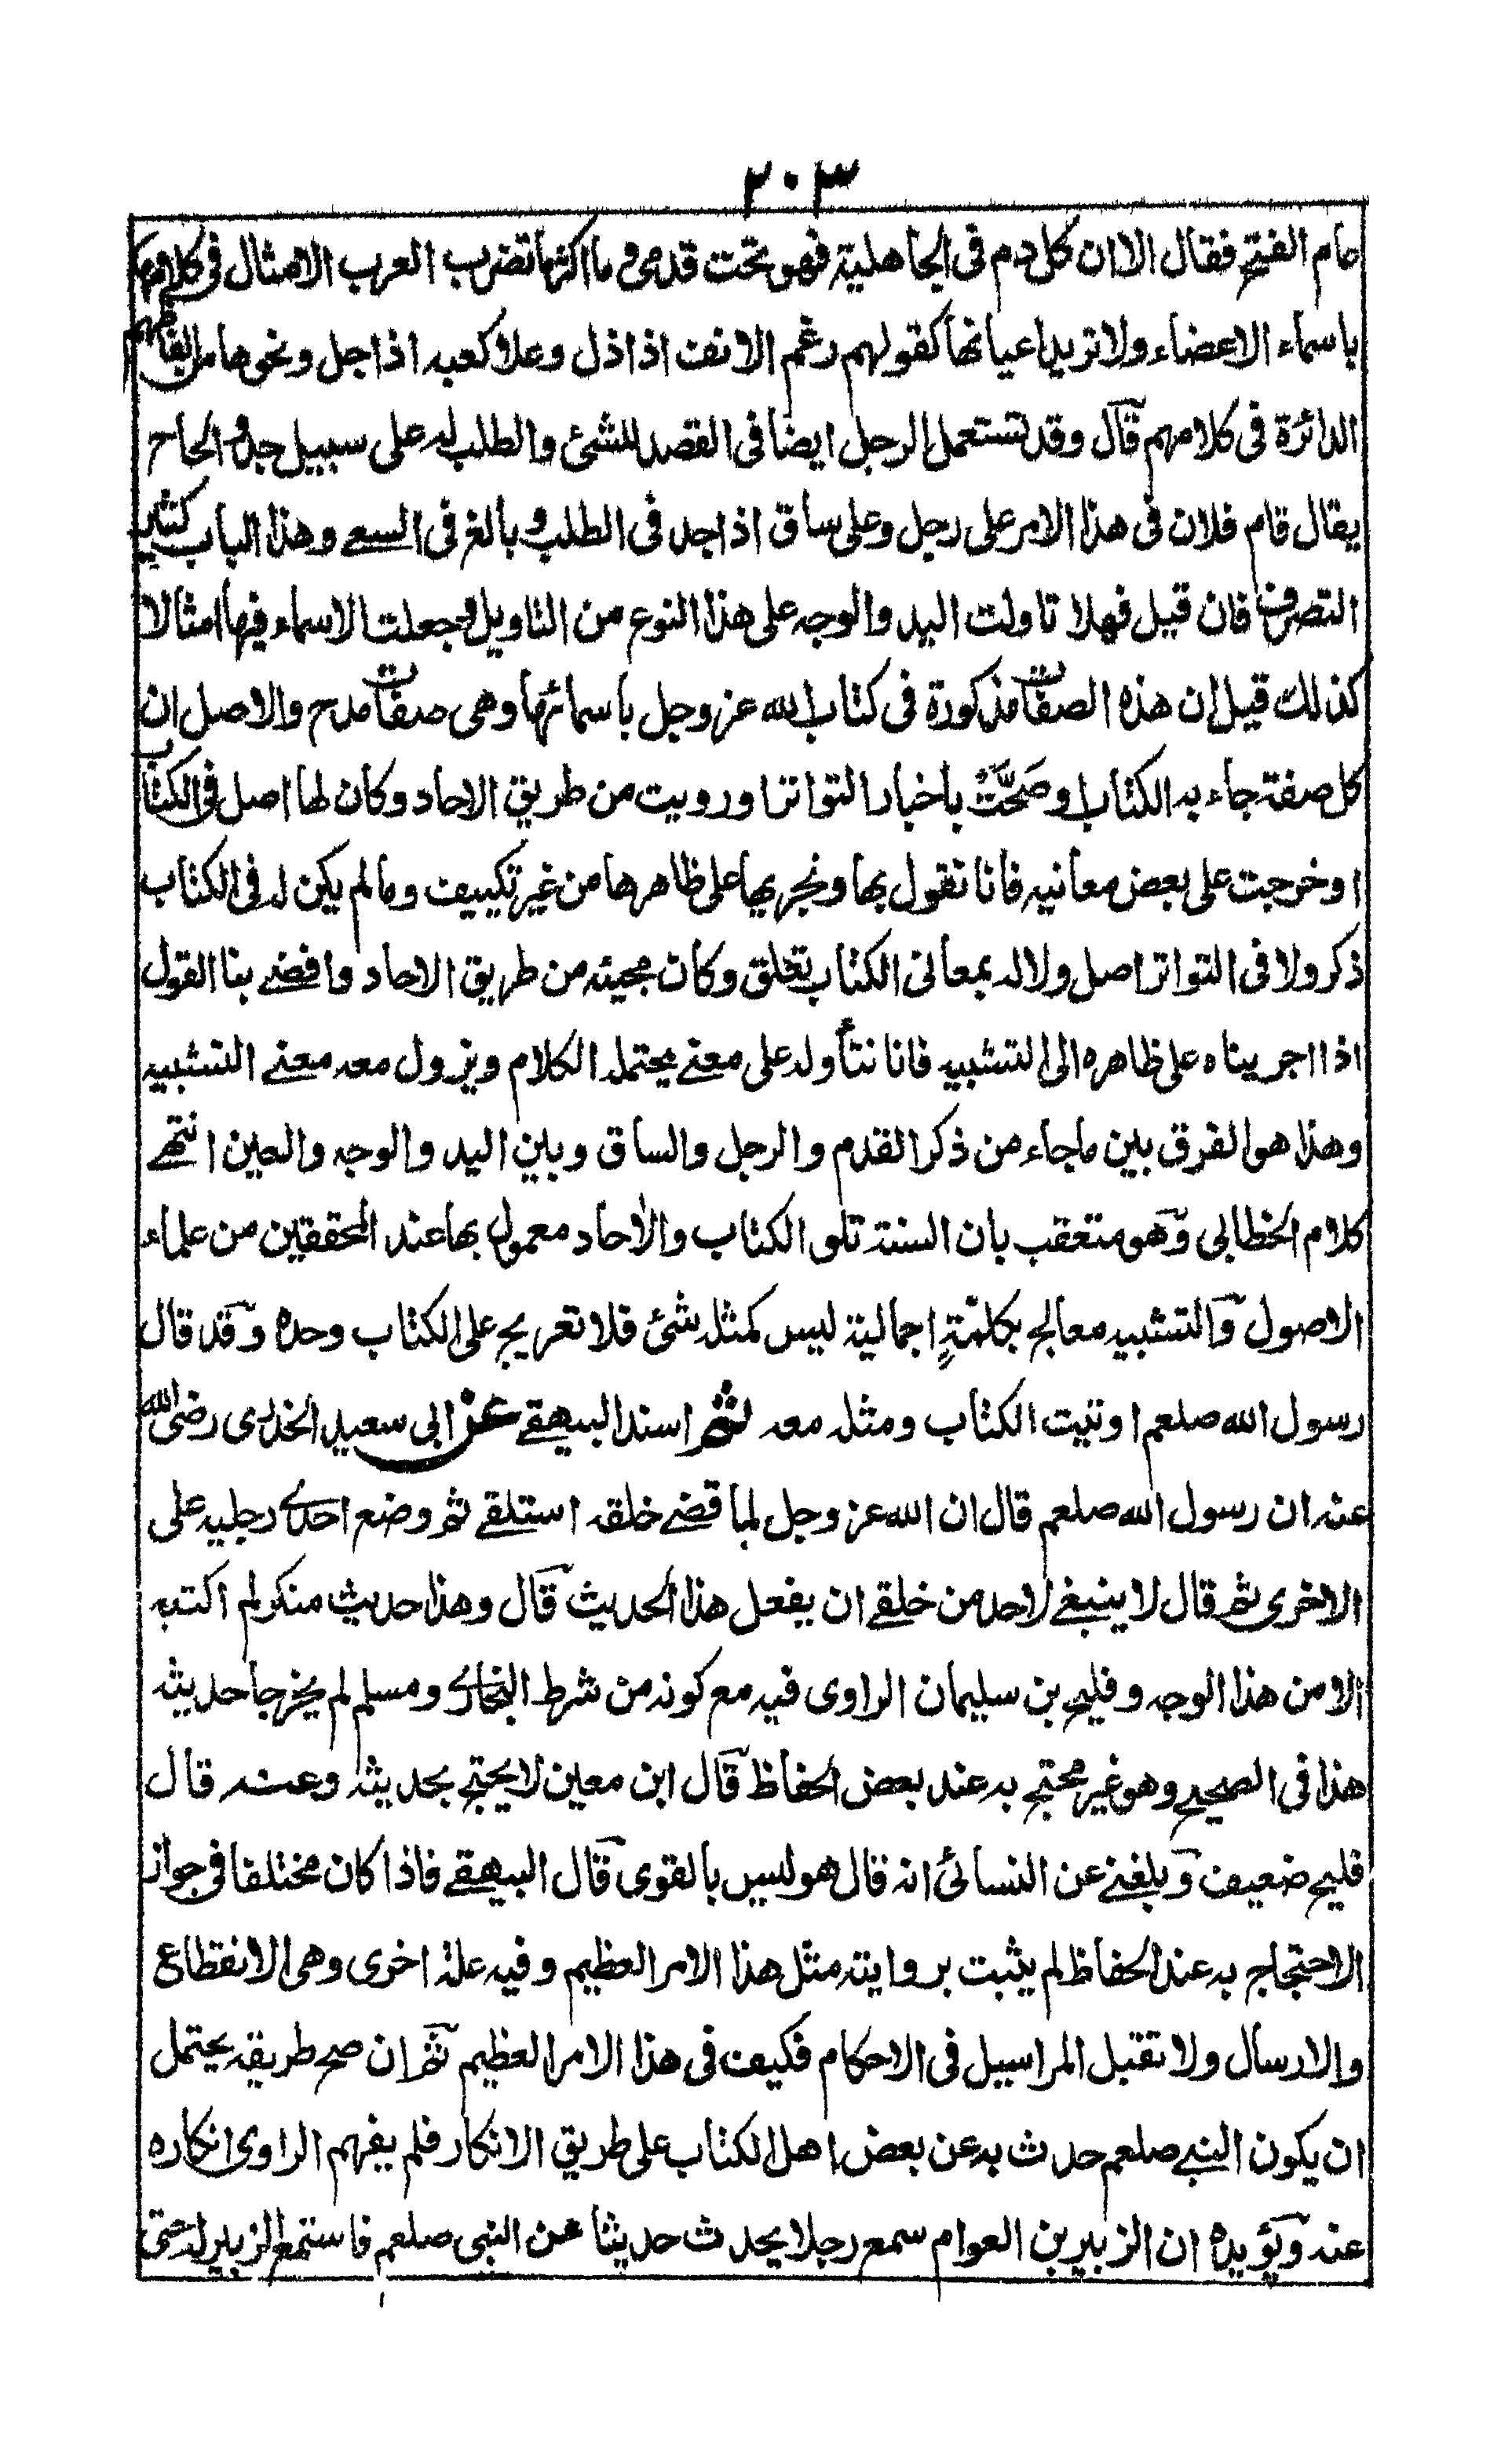 ٢٠٣
عام الفتح فقال الا ان كل دم فى الجاهلية فهو تحت قدمى وما اكثر ما تضرب العرب الامثال فى كلامها
باسماء الاعضاء ولا تريد اعيانها كقولهم رغم الانف اذا ذل وعلا كعبه اذا جل ونحوها من الفاظهم
الدائرة فى كلامهم قال وقد تستعمل الرجل ايضا فى القصد للشئ والطلب له على سبيل جد والحاح
يقال قام فلان فى هذا الامر على رجل وعلى ساق اذا جد فى الطلب وبالغ فى السعے وهذا الباب كثير
التصرف فان قيل فهلا تاولت اليد والوجه على هذا النوع من التاويل وجعلت الاسماء فيها امثالا
كذلك قيل ان هذه الصفات مذكورة فى كتاب الله عز وجل باسمائها وهى صفات مدح والاصل ان
كل صفة جاء به الكتاب وصَحَّتْ باخبار التواتر او رويت من طريق الاحاد وكان لها اصل فى الكتاب
او خرجت على بعض معانيه فانا نقول بها ونجريها على ظاهرها من غير تكييف وما لم يكن له فى الكتاب
ذكر ولا فى التواتر اصل ولا له بمعانى الكتاب تعلق وكان مجيئه من طريق الاحاد وافضے بنا القول
اذا اجريناه على ظاهره الى التشبيه فانا نتأوله على معنے يحتمله الكلام ويزول معه معنے التشبيه
وهذا هو الفرق بين ما جاء من ذكر القدم والرجل والساق وبين اليد والوجه والعين انتهے
كلام الخطابى وهو متعقب بان السنة تلو الكتاب والاحاد معمول بها عند المحققين من علماء
الاصول والتشبيه معالج بكلمةٍ اجمالية ليس كمثله شئ فلا تعريج على الكتاب وحده وقد قال
رسول الله صلعم اوتيت الكتاب ومثله معه ثم اسند البيهقے عن ابى سعيد الخدرى رضى الله
عنه ان رسول الله صلعم قال ان الله عز وجل لما قضے خلقه استلقے ثم وضع احدے رجليه على
الاخرى ثم قال لا ينبغے لاحد من خلقے ان يفعل هذا الحديث قال وهذا حديث منكر لم اكتبه
الا من هذا الوجه وفليح بن سليمان الراوى فيه مع كونه من شرط البخارے ومسلم لم يخرجا حديثه
هذا فى الصحيح وهو غير محتج به عند بعض الحفاظ قال ابن معين لا يحتج بحديثه وعنه قال
فليح ضعيف وبلغنے عن النسائى انه قال هو ليس بالقوى قال البيهقے فاذا كان مختلفا فى جواز
الاحتجاج به عند الحفاظ لم يثبت بروايته مثل هذا الامر العظيم وفيه علة اخرى وهى الانقطاع
والارسال ولا تقبل المراسيل فى الاحكام فكيف فى هذا الامر العظيم ثم ان صح طريقه يحتمل
ان يكون النبے صلعم حدث به عن بعض اهل الكتاب على طريق الانكار فلم يفهم الراوى انكاره
عنه ويؤيده ان الزبير بن العوام سمع رجلا يحدث حديثا عن النبى صلعم فاستمع الزبير له حتى